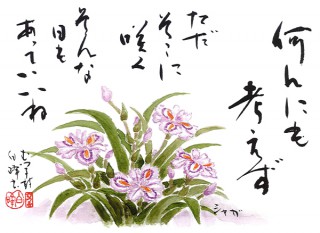 何んにも
考えず
ただ
そこに
咲く
そんな
日も
あっていいね
シャガ